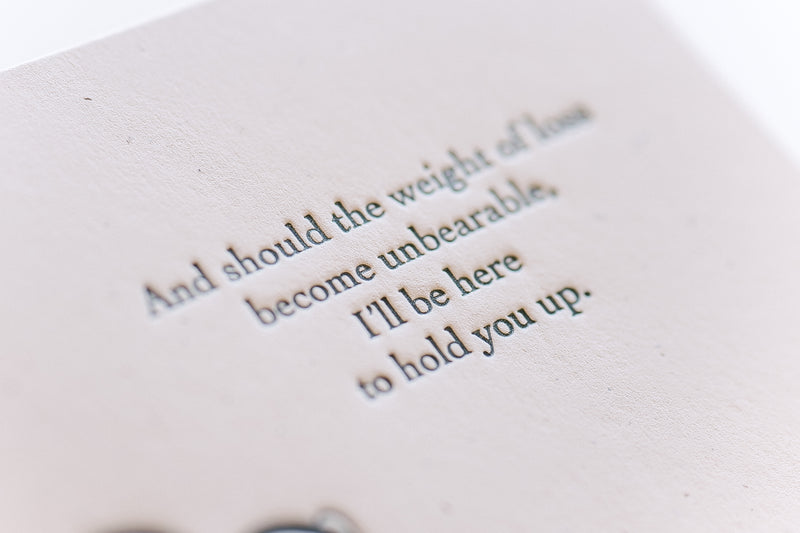 And should the weight of loss
become unbearable,
I'll be here
to hold you up.